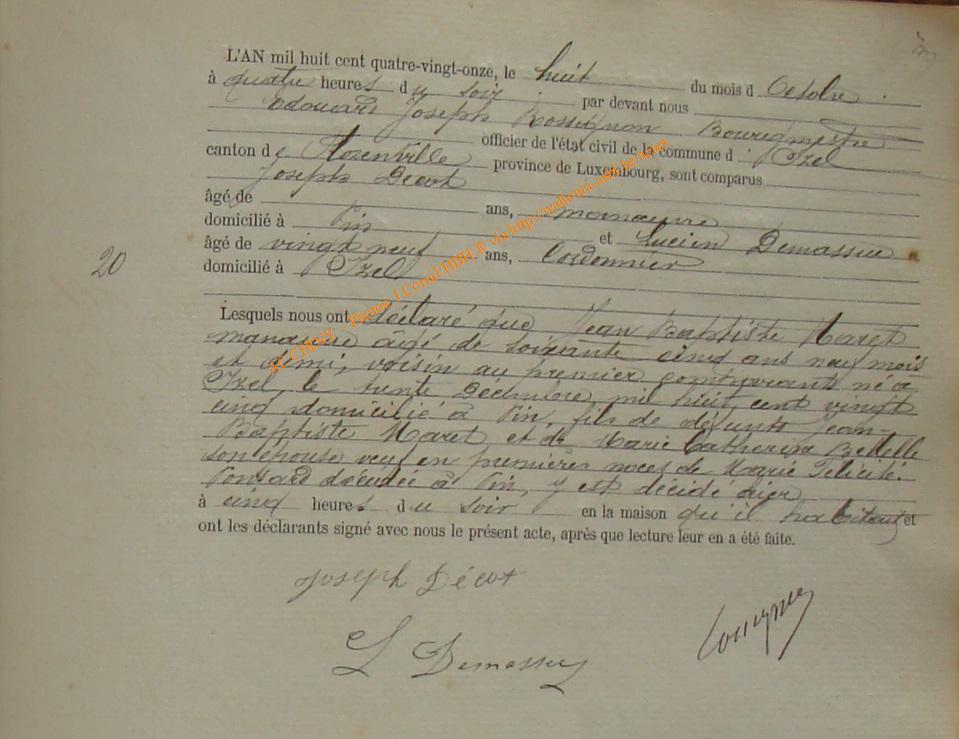 L'AN mil huit cent quatre-vingt-onze, le huit du mois d Octobre
à quatre heures du soir par devant nous
Edouard Joseph Rossignon Bourgmestre
officier de l'état civil de la commune d Izel
canton de Florenville province de Luxembourg, sont comparus
Joseph Décot
âgé de ans, manœuvre
domicilié à Pin et Lucien Demasseu
âgé de vingt neuf ans, Cordonnier
domicilié à Izel
20
Lesquels nous ont déclaré que Jean Baptiste Maret
manœuvre âgé de soixante cinq ans neuf mois
et demi, voisin au premier comparant né à
Izel, le trente Décembre mil huit cent vingt
cinq domicilié à Pin, fils de défunts Jean-
Baptiste Maret et de Marie Catherine
son épouse veuf en premières noces de Marie Félicité
Ponsard décédée à Pin, y est décédé hier
à cinq heures du soir en la maison qu'il habitait et
ont les déclarants signé avec nous le présent acte, après que lecture leur en a été faite.
Joseph Décot
L Demasseu